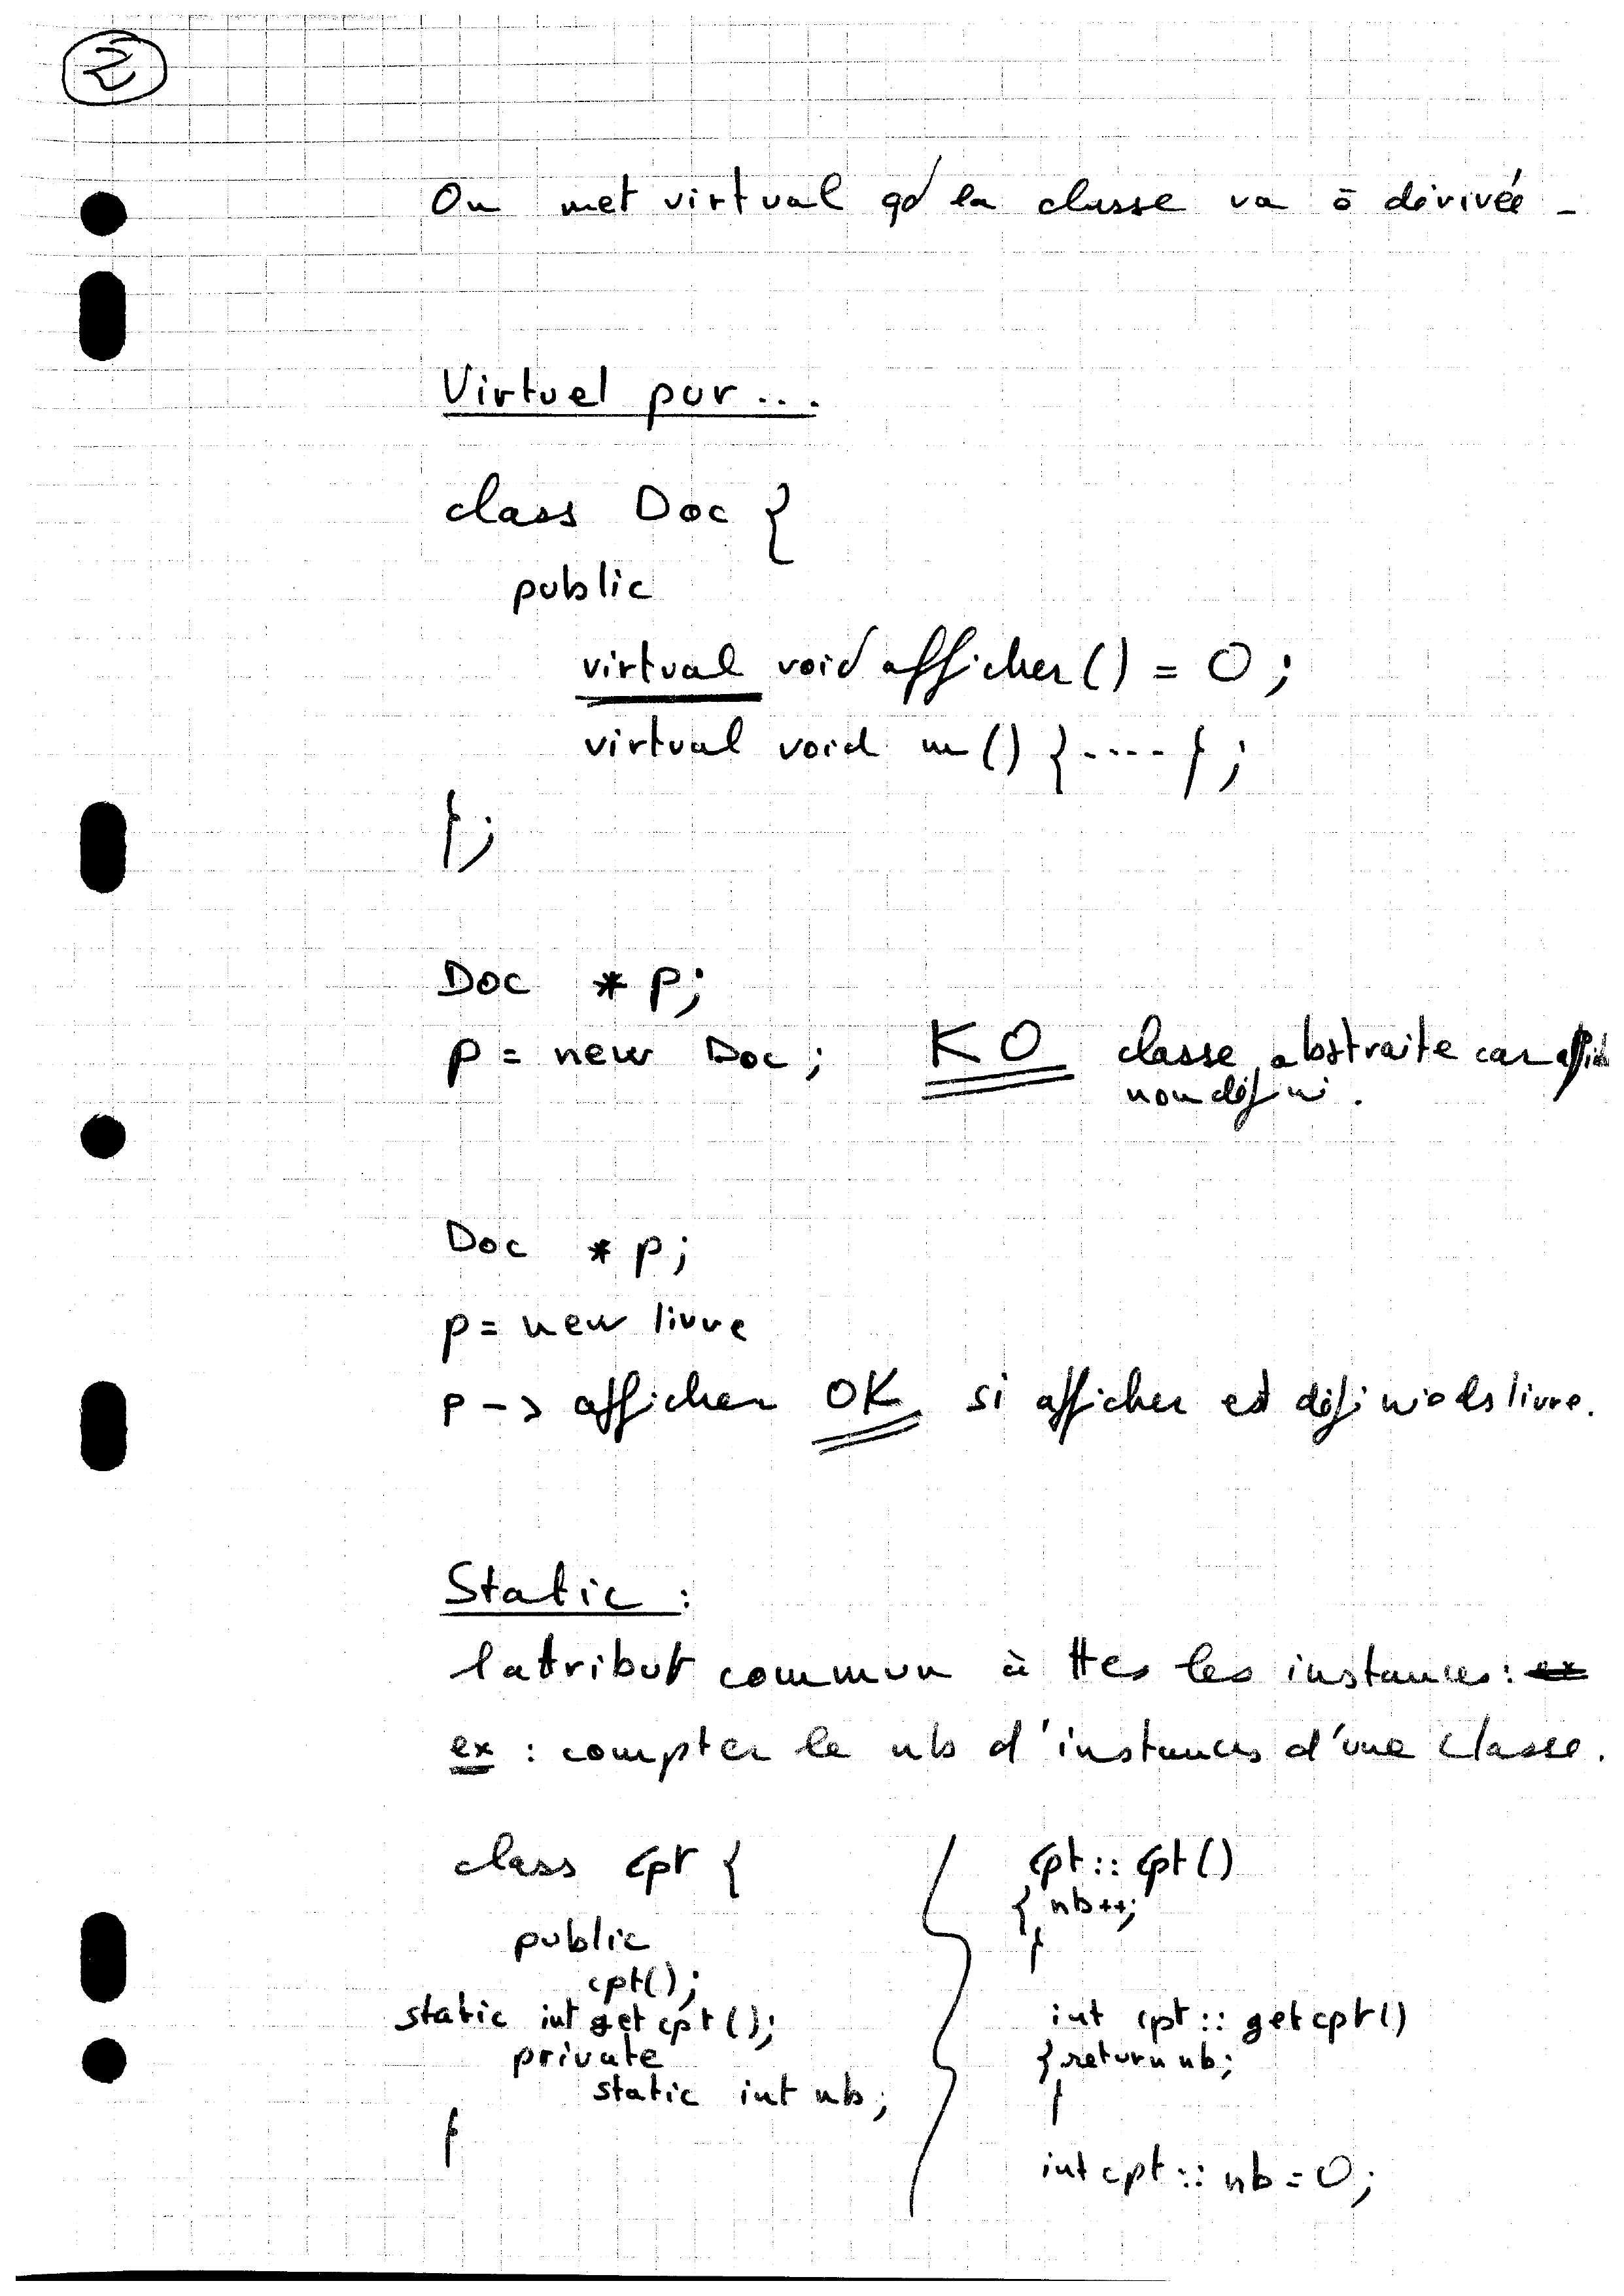 2
On met virtual qd la classe va ê dérivée -
Virtuel pur ...
class Doc {
public
virtual void afficher() = 0 ;
virtual void m() { ---- } ;
} ;
Doc * p;
p = new Doc ; KO classe abstraite car
non défini .
Doc * p ;
p = new livre
p -> afficher OK si afficher est défini ds livre.
Static :
1 attribut commun à ttes les instances : ex
ex : compter le nb d'instances d'une classe.
class cpt {
public
cpt();
static int getcpt();
private
static int nb;
}
cpt :: cpt()
{ nb++;
}
int cpt :: getcpt()
{ return nb;
}
int cpt :: nb = 0;